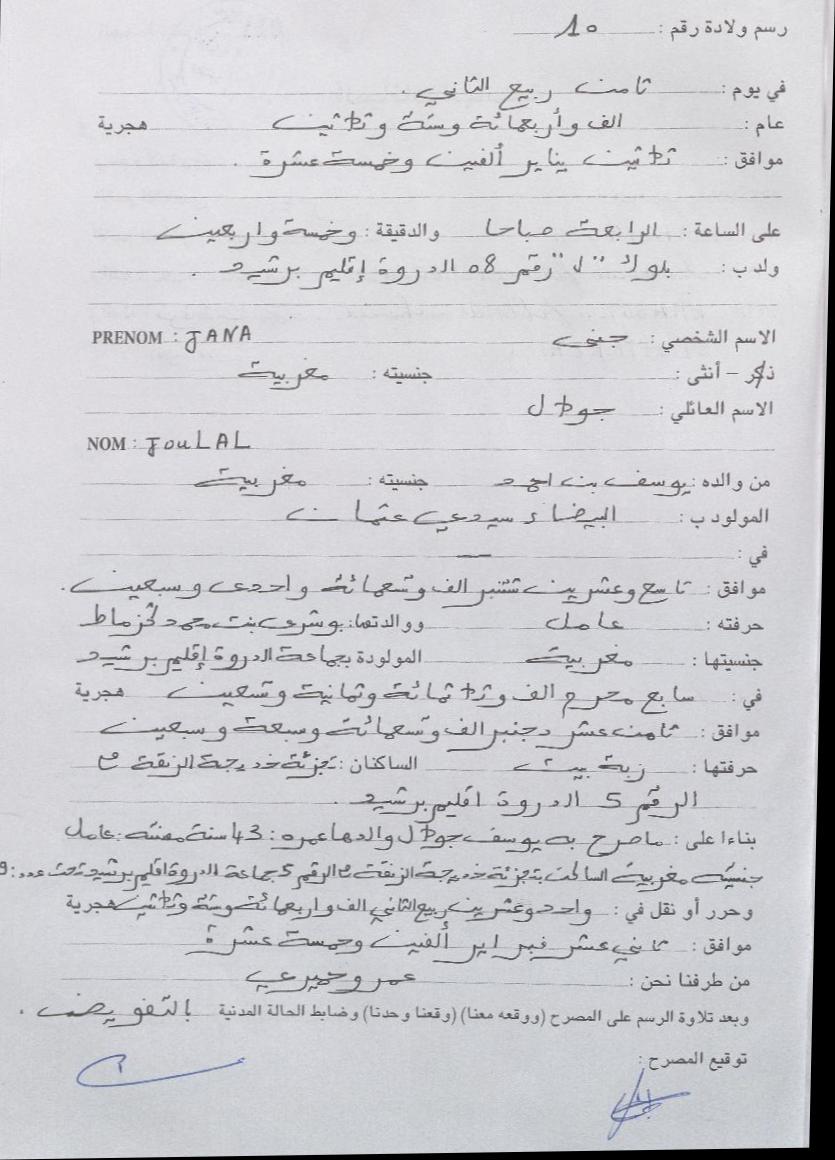 رسم ولادة رقم : 10
في يوم : ثامن ربيع الثاني .
عام : الف وأربعمائة وستة وثلاثين هجرية
موافق : ثلاثين يناير ألفين وخمسة عشرة .
على الساعة : الرابعة صباحا والدقيقة : وخمسة واربعين
ولد ب : بلوك "د" رقم 08 الدروة إقليم برشيد .
الاسم الشخصي : جنى PRENOM : JANA
ذكر – أنثى : جنسيته : مغربية
الاسم العائلي : جولال
NOM : JOULAL
من والده : يوسف بن احمد جنسيته : مغربية
المولود ب : البيضاء سيدي عثمان
في : —
موافق : تاسع وعشرين شتنبر الف وتسعمائة واحدى وسبعين .
حرفته : عامل ووالدتها : بوشرى بنت محمد
جنسيتها : مغربية المولودة بجماعة الدروة إقليم برشيد
في : سابع محرم الف وثلاثمائة وثمانية وتسعين هجرية
موافق : ثامن عشر دجنبر الف وتسعمائة وسبعة وسبعين
حرفتها : ربة بيت الساكنان : تجزئة خديجة الزنقة
الرقم 5 الدروة اقليم برشيد .
بناءا على : ماصرح به يوسف جولال والدها عمره : 43 سنة مهنته : عامل
جنسيته مغربية الساكن بتجزئة خديجة الزنقة الرقم 5 جماعة الدروة اقليم برشيد تحت عدد : 9
وحرر أو نقل في : واحد وعشرين ربيع الثاني الف واربعمائة وستة وثلاثين هجرية
موافق : ثاني عشر فبراير ألفين وخمسة عشرة
من طرفنا نحن : عمر وحميدي
وبعد تلاوة الرسم على المصرح (ووقعه معنا) (وقعنا وحدنا) وضابط الحالة المدنية بالتفويض .
توقيع المصرح :